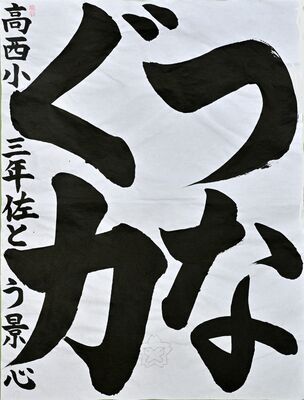 つな
ぐ力
高西小 三年 佐とう景心